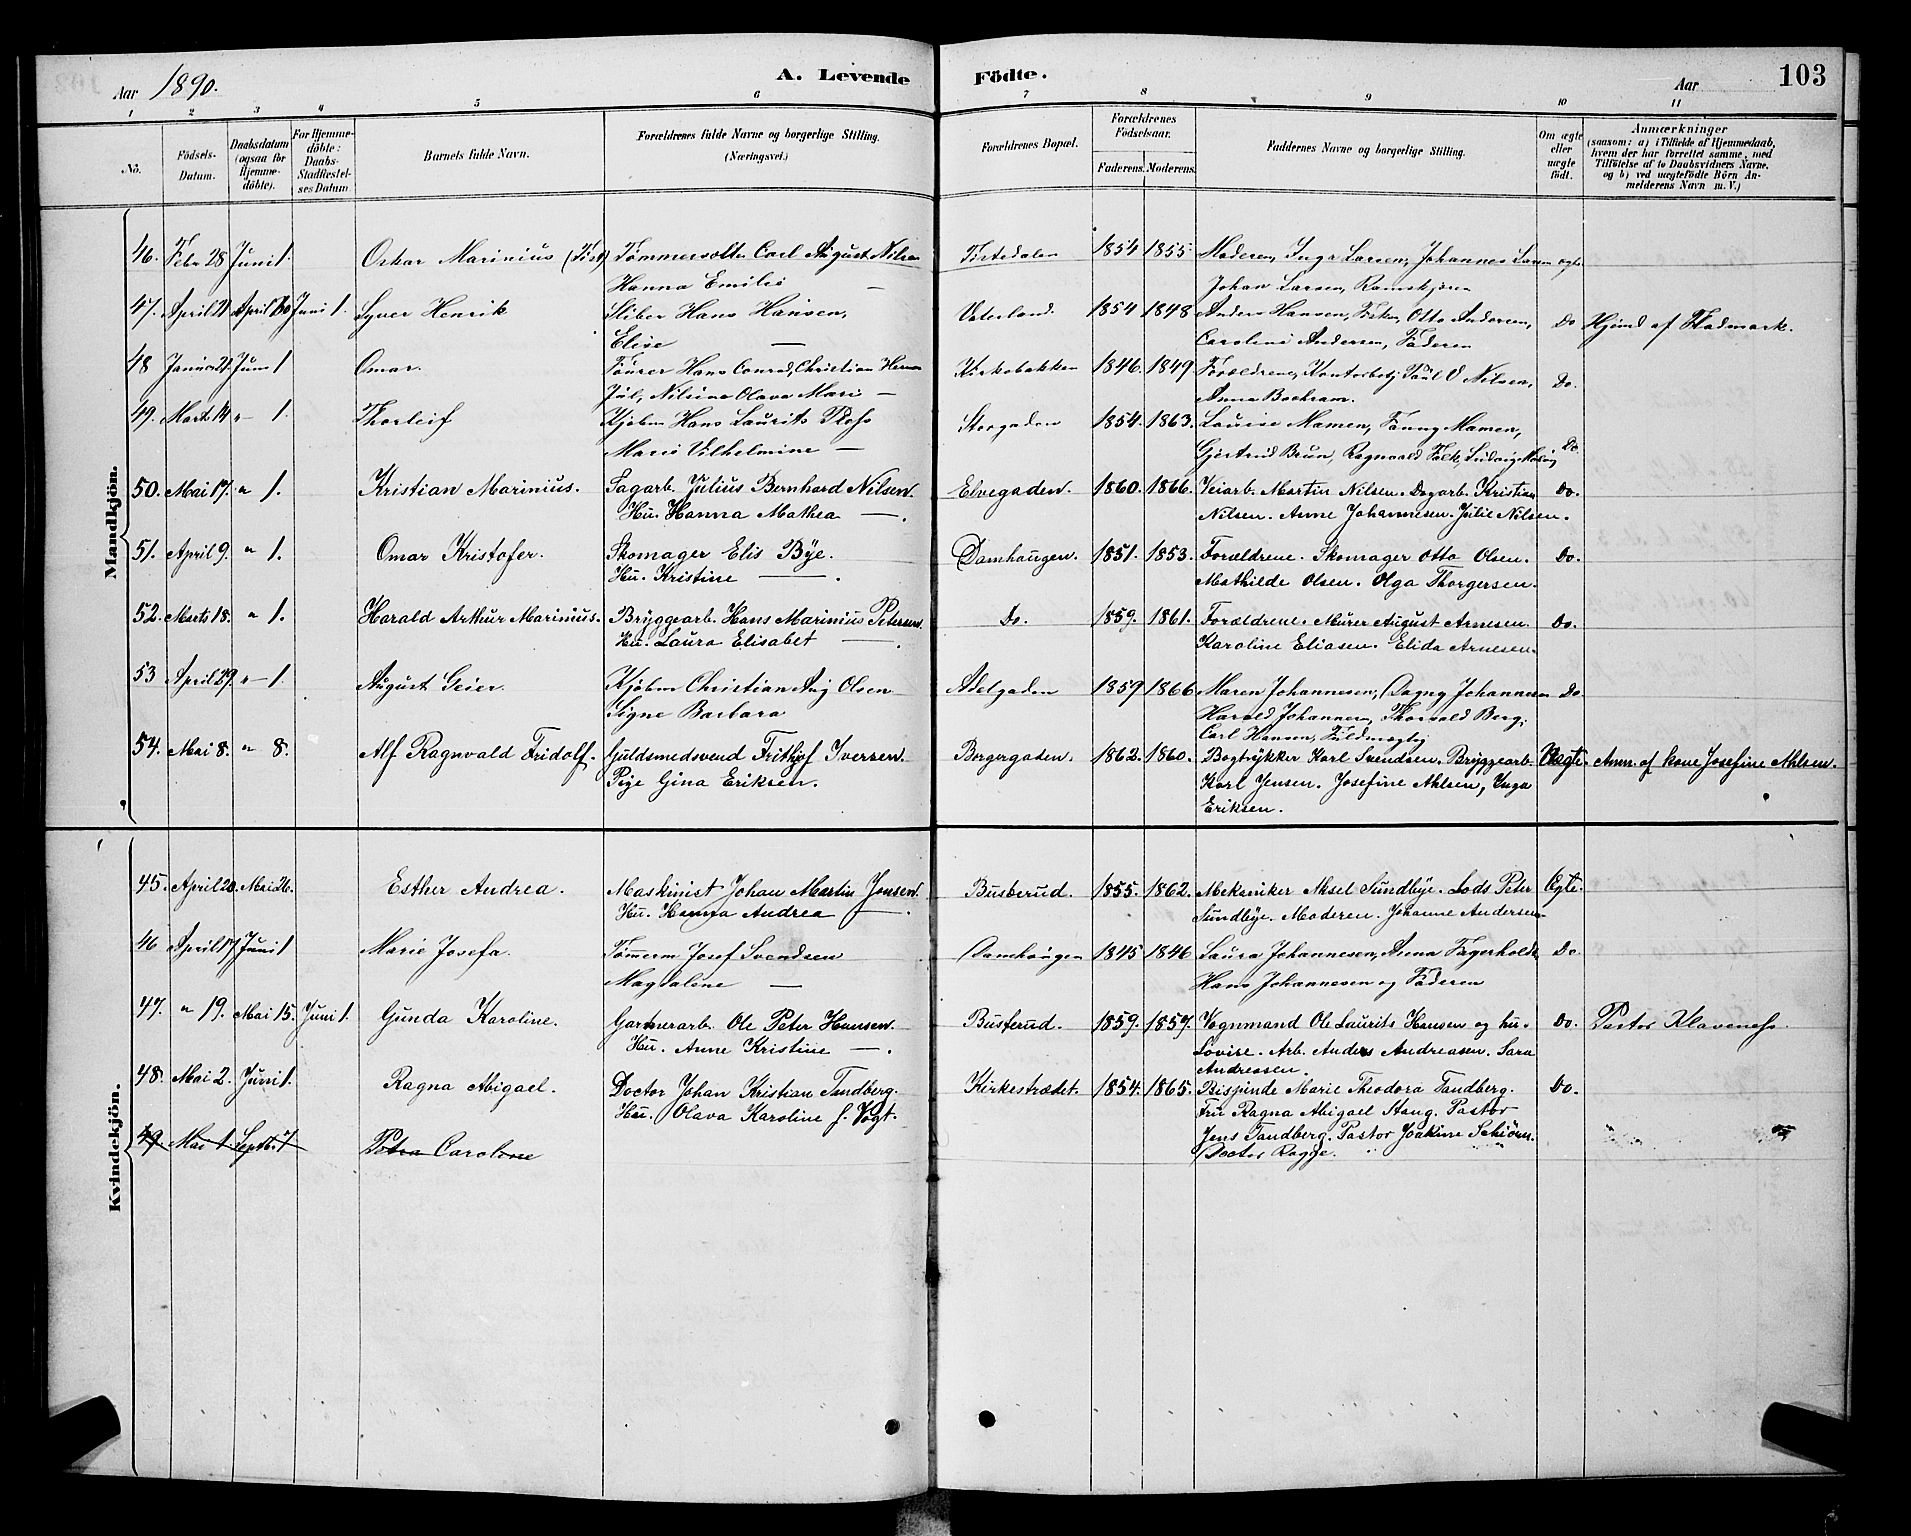 Aar 1890. A. Levende Födte. Aar 103
1 2 3 4 5 6 7 8 9 10 11
No. Födsels-Datum. Daabsdatum (ogsaa for Hjemme-döbte). For Hjemme-döbte: Daabs-Stadfæstel-ses Datum Barnets fulde Navn. Forældrenes fulde Navne og borgerlige Stilling. (Næringsvei.) Forældrenes Bopæl. Forældrenes Födselsaar. Faderens. Moderens. Faddernes Navne og borgerlige Stilling. Om ægte eller uægte födt. Anmærkninger (saasom: a) i Tilfælde af Hjemmedaab, hvem der har forrettet samme, med Tilföielse af to Daabsvidners Navne. og b) ved uægtefödte Börn An-melderens Navn m. V.)
Mandkjön.
46. Febr 28 Juni 1. Oskar Marinius (Tist) Tømmersolter Carl August Nilsen Tistedalen 1854 1855. Moderen, Inga Larsen, Johannes Larsen ægte
Hanna Emilie — Johan Larsen, Ramskjøen
47. April 21 April 30 Juni 1. Syver Henrik Sliber Hans Hansen, Vaterland. 1854 1848 Anders Hansen, Fisker, Otto Andersen, Do Hjemd af Fladmark.
Elise — Caroline Andersen, Faderen
48 Januar 21. Juni 1 Omar. Fører Hans Conrad, Christian Herman Kirkebakken 1846. 1849. Forældrene, Kontorbetj Paul O Nilsen, Do.
Jul, Nilsine Olava Marie — Anna Bochram.
49. Marts 14 " — 1. Thorleif Kjøbm Hans Laurits Thofs Storgaden 1854. 1863. Louise Mamen, Fanny Mamen,
Marie Vilhelmine — Gjertrud Brun, Ragnvald Falk, Ludvig Do.
50. Mai 17. " 1. Kristian Marinius. Sagarb. Julius Bernhard Nilsen. Elvegaden. 1860. 1866. Veiarb. Martin Nilsen. Dagarb. Kristian Do.
Hu. Hanna Mathea —. Nilsen. Anne Johannesen. Julie Nilsen.
51. April 9. " 1. Omar Kristofer. Skomager Elis Bye. Damhaugen. 1851. 1853. Forældrene. Skomager Otto Olsen. Do.
Hu. Kristine —. Mathilde Olsen. Olga Thorgersen.
52. Marts 18. " 1. Harald Arthur Marinius. Bryggearb. Hans Marinius Petersen. Do. 1859. 1861. Forældrene. Murer August Arnesen. Do.
Hu. Laura Elisabet —. Karoline Eliasen. Elida Arnesen.
53 April 29. " — 1. August Geier. Kjøbm Christian Aug Olsen Adelgaden 1859 1866 Maren Johannesen, Dagny Johannesen Do.
Signe Barbara Harald Johannesen, Thorvald Berg,
Carl Hansen, Fuldmægtig
54. Mai 8. " 8. Alf Ragnvald Fridolf. Guldsmedsvend Frithjof Iversen. Borgergaden. 1862. 1860. Bogtrykker Karl Svendsen. Bryggearb. Uægte. Anm. af kone Josefine Ahlsen.
Pige Gina Eriksen. Karl Jensen. Josefine Ahlsen, Inga
Eriksen.
Kvindekjön.
45. April 20. Mai 26. Esther Andrea. Maskinist Johan Martin Jensen. Busterud. 1855. 1862. Mekaniker Aksel Sundbye. Lods Peter Ægte.
Hu. Hanna Andrea —. Sundbye. Moderen. Johanne Andersen
46 April 17. Juni 1 Marie Josefa. Tømerm Josef Svendsen Damhaugen 1845 1846 Laura Johannesen, Anna Fagerholdt Do
Magdalene — Hans Johannesen og Faderen
47. " 19. Mai 15. Juni 1. Gunda Karoline. Garnerarb. Ole Peter Hansen. Busterud. 1859. 1857. Vognmand Ole Laurits Hansen og hu. Do. Pastor Klaveness.
Hu. Anne Kristine —. Lovise. Arb. Anders Andreasen. Sara
Andreasen.
48. Mai 2. Juni 1. Ragna Abigael. Doctor Johan Kristian Tandberg. Kirkestrædet. 1854. 1865. Bispinde Marie Theodora Tandberg. Do.
Hu. Olava Karoline f. Vogt. Fru Ragna Abigael Stang. Pastor
Jens Tandberg. Pastor Joakim Schiörn.
49. Mai 1 Septb. 7 Petra Caroline Doctor Rogge.